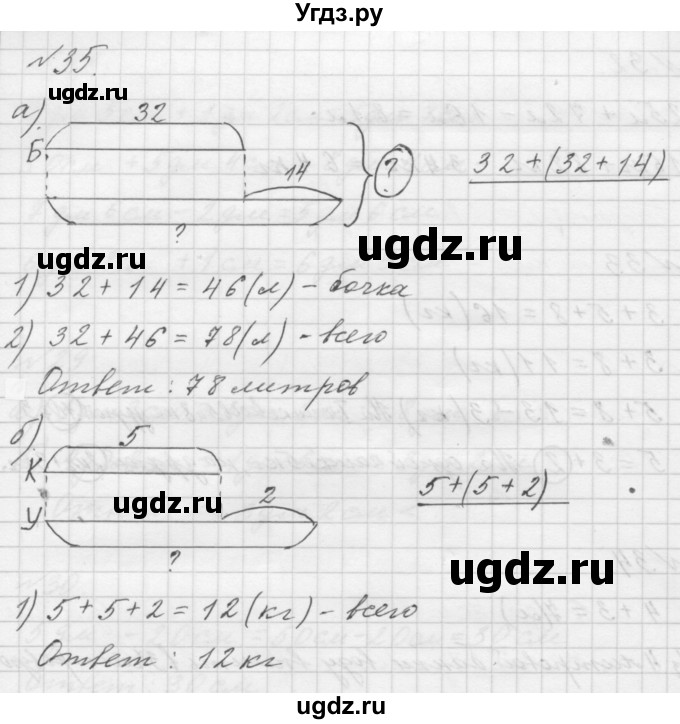 Угдз.ру
№35.
ugdz.ru
а)
32
Б
14
?
32+(32+14)
?
ugdz.ru
ugdz.ru
1) 32 + 14 = 46(л) - бочка
2) 32 + 46 = 78(л) - всего
Ответ: 78 литров
б)
5
К
ugdz.ru
2
5+(5+2)
У
?
ugdz.ru
1) 5+5+2 = 12(кг) - всего
Ответ: 12 кг
ugdz.ru
ugdz.ru